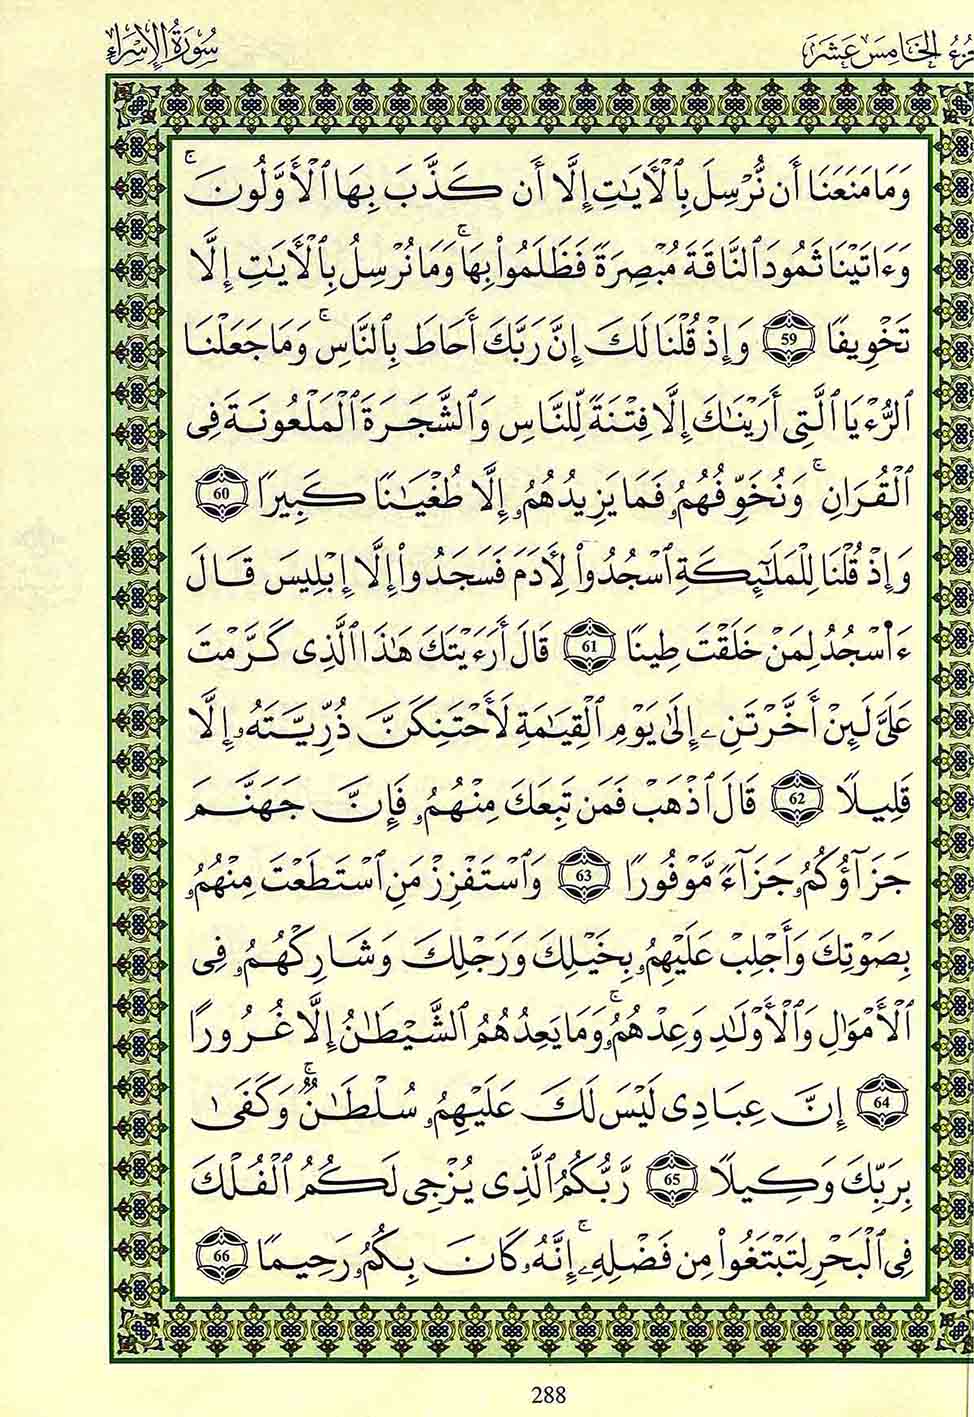 الجزء الخامس عشر
سورة الإسراء
وَمَا مَنَعَنَا أَن نُّرْسِلَ بِٱلْأَيَٰتِ إِلَّا أَن كَذَّبَ بِهَا ٱلْأَوَّلُونَ ۚ
وَءَاتَيْنَا ثَمُودَ ٱلنَّاقَةَ مُبْصِرَةً فَظَلَمُواْ بِهَا ۚ وَمَا نُرْسِلُ بِٱلْأَيَٰتِ إِلَّا
تَخْوِيفًا 59 وَإِذْ قُلْنَا لَكَ إِنَّ رَبَّكَ أَحَاطَ بِٱلنَّاسِ ۚ وَمَا جَعَلْنَا
ٱلرُّءْيَا ٱلَّتِى أَرَيْنَٰكَ إِلَّا فِتْنَةً لِّلنَّاسِ وَٱلشَّجَرَةَ ٱلْمَلْعُونَةَ فِى
ٱلْقُرَانِ ۚ وَنُخَوِّفُهُمُۥ فَمَا يَزِيدُهُمُۥ إِلَّا طُغْيَٰنًا كَبِيرًا 60
وَإِذْ قُلْنَا لِلْمَلَٰٓئِكَةِ ٱسْجُدُواْ لِأَدَمَ فَسَجَدُواْ إِلَّا إِبْلِيسَ قَالَ
ءَا۬سْجُدُ لِمَنْ خَلَقْتَ طِينًا 61 قَالَ أَرَءَيْتَكَ هَٰذَا ٱلَّذِى كَرَّمْتَ
عَلَىَّ لَئِنْ أَخَّرْتَنِۦ إِلَىٰ يَوْمِ ٱلْقِيَٰمَةِ لَأَحْتَنِكَنَّ ذُرِّيَّتَهُۥ إِلَّا
قَلِيلًا 62 قَالَ ٱذْهَبْ فَمَن تَبِعَكَ مِنْهُمُۥ فَإِنَّ جَهَنَّمَ
جَزَآؤُكُمُۥ جَزَآءً مَّوْفُورًا 63 وَٱسْتَفْزِزْ مَنِ ٱسْتَطَعْتَ مِنْهُمُۥ
بِصَوْتِكَ وَأَجْلِبْ عَلَيْهِمُۥ بِخَيْلِكَ وَرَجْلِكَ وَشَارِكْهُمُۥ فِى
ٱلْأَمْوَٰلِ وَٱلْأَوْلَٰدِ وَعِدْهُمُۥ ۚ وَمَا يَعِدُهُمُ ٱلشَّيْطَٰنُ إِلَّا غُرُورًا
64 إِنَّ عِبَادِى لَيْسَ لَكَ عَلَيْهِمُۥ سُلْطَٰنٌ ۚ وَكَفَىٰ
بِرَبِّكَ وَكِيلًا 65 رَّبُّكُمُ ٱلَّذِى يُزْجِى لَكُمُ ٱلْفُلْكَ
فِى ٱلْبَحْرِ لِتَبْتَغُواْ مِن فَضْلِهِۦ ۚ إِنَّهُۥ كَانَ بِكُمُۥ رَحِيمًا 66
288